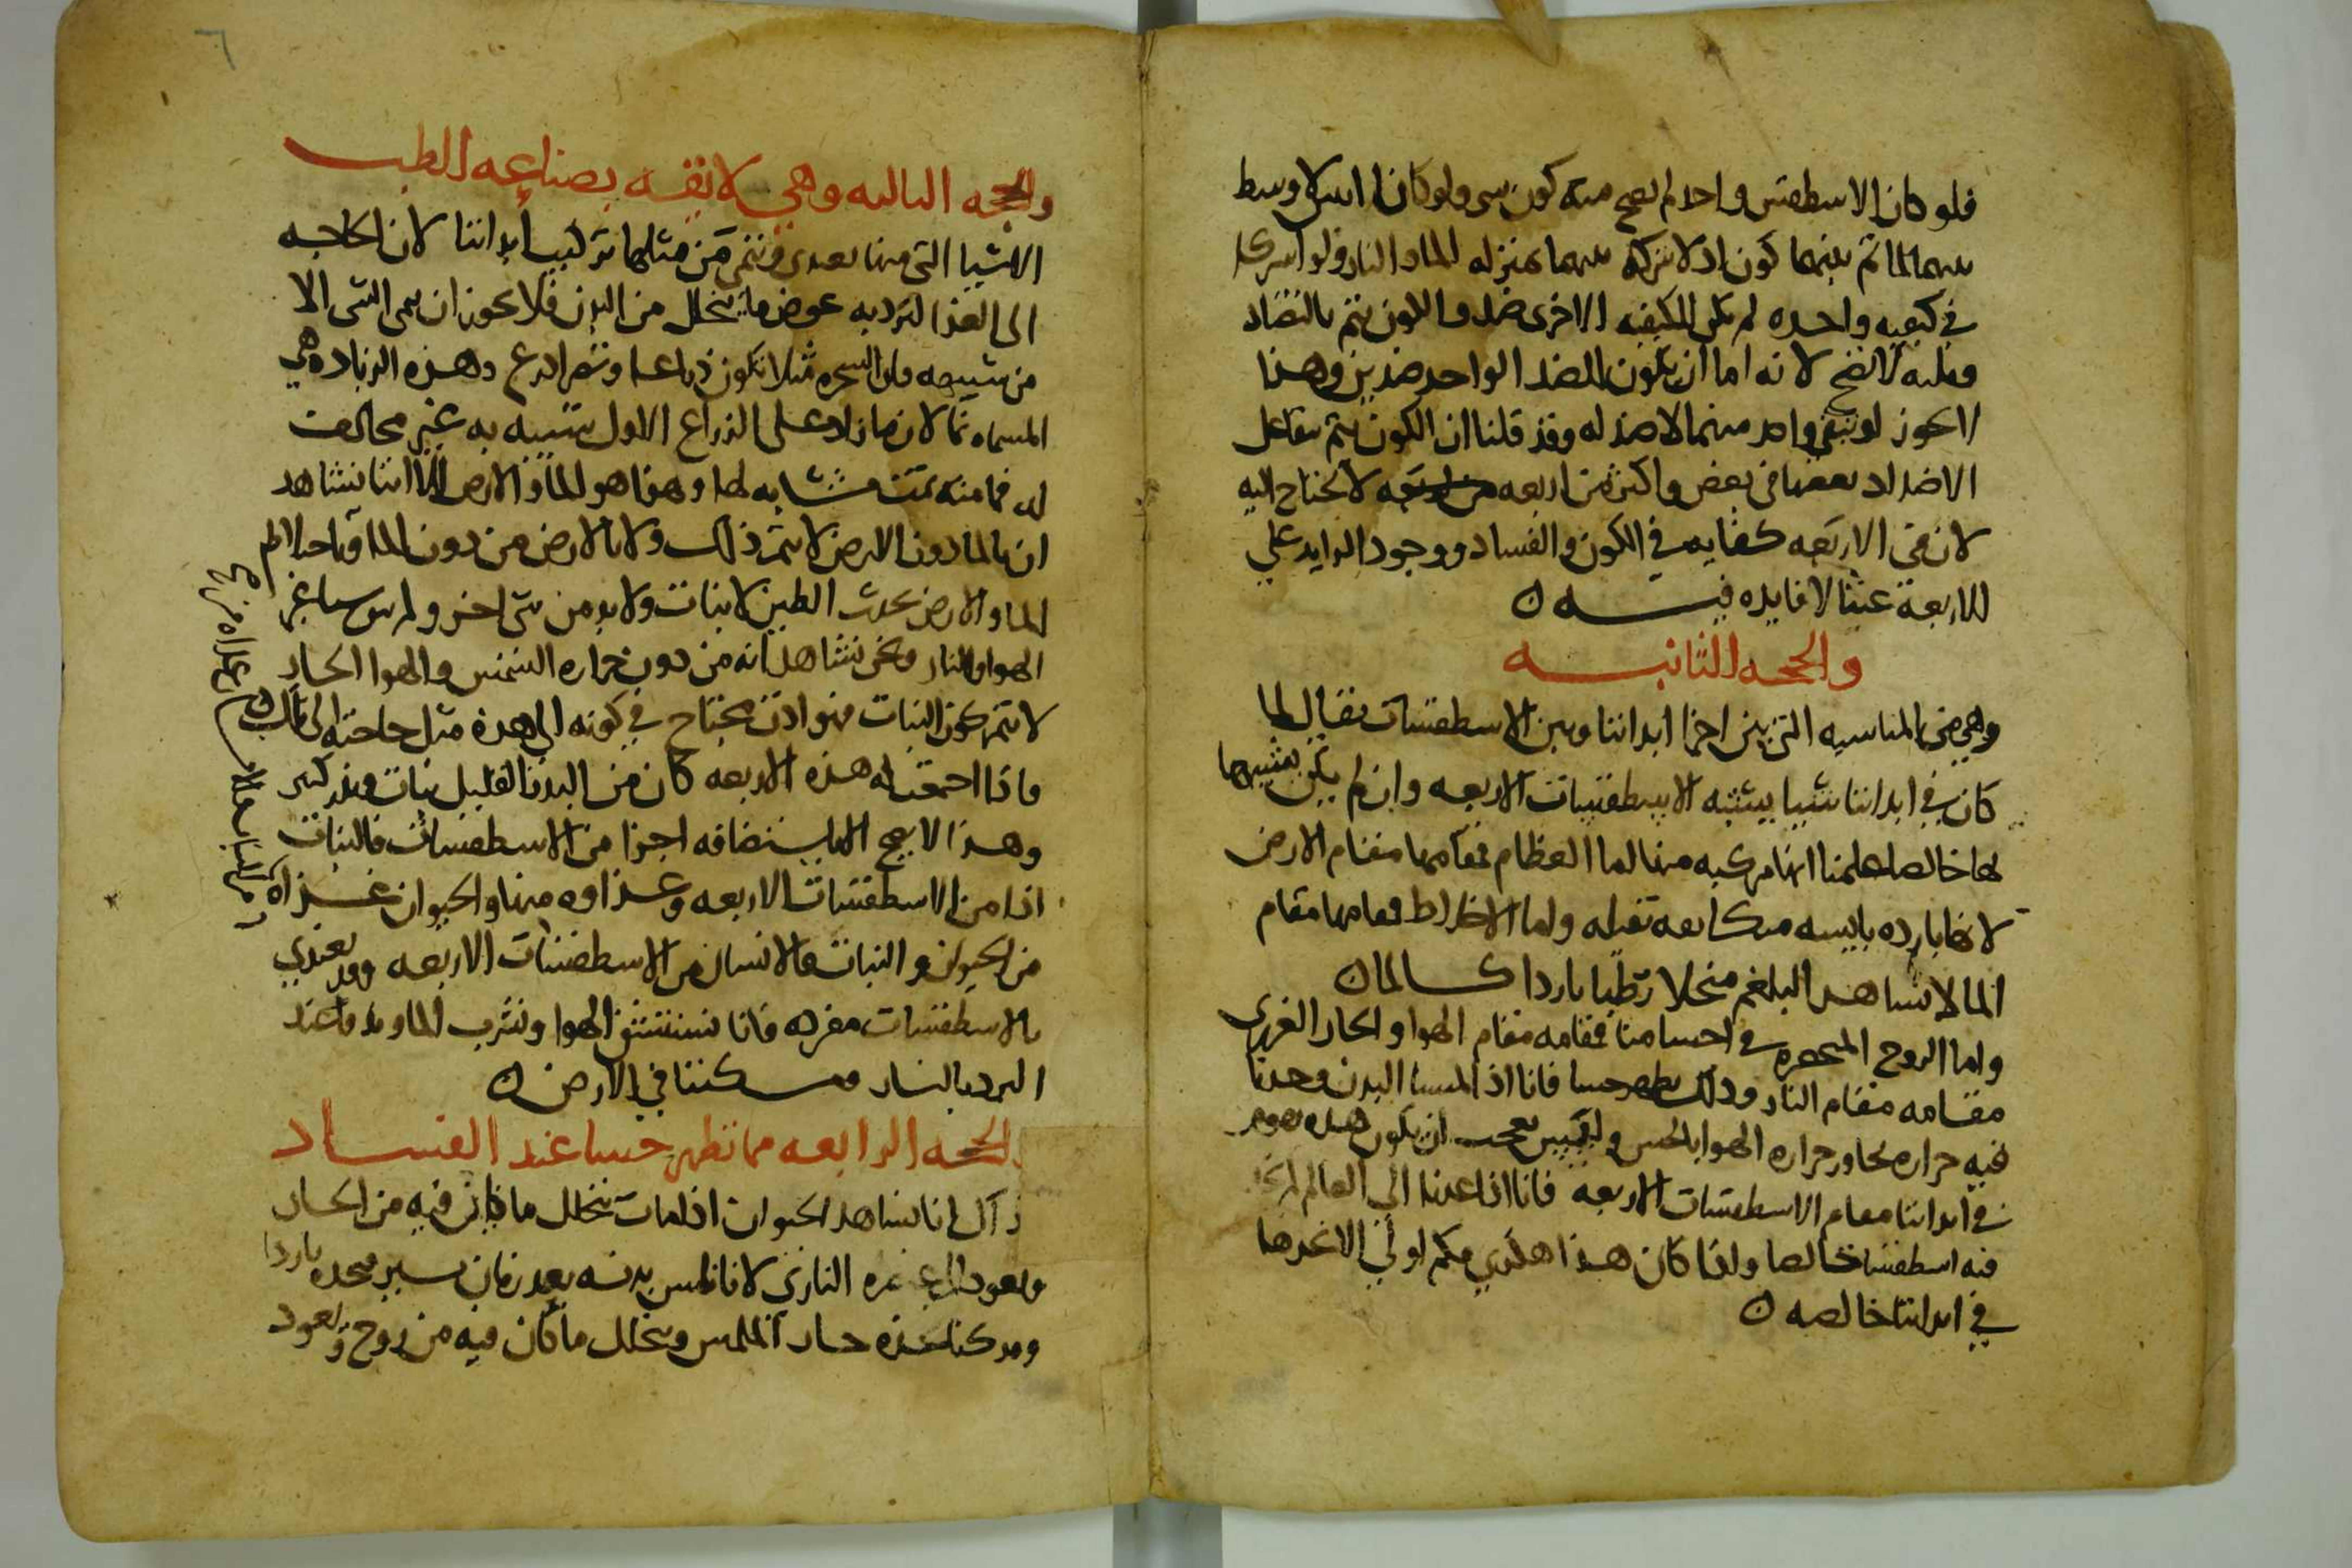 فلو كان الاسطقس واحدا لم يصح منه كون شى ولو كانا اثنين لا وسط
بينهما لما تم بينهما كون اذ لا شركه بينهما بمنزله الما والنار ولو اشتركا
في كيفيه واحده لم تكن للكيفيه الاخرى ضد والكون يتم بالتضاد
وثلثه لا تصح لانه اما ان يكون للضد الواحد ضدين وهذا
لا يجوز او يبقى واحد منهما لا ضد له وقد قلنا ان الكون يتم بتفاعل
الاضداد بعضها في بعض واكثر من اربعه لا يحتاج اليه
لان في الاربعه كفايه في الكون والفساد ووجود الزايد على
الاربعة عبثا لا فايده فيه
والحجه الثانيه
وهي من المناسبه التي بين اجزا ابداننا وبين الاسطقسات يقال لما
كان في ابداننا شيا يشبه الاسطقسات الاربعه وان لم يكن بعينها
لها خالصا علمنا انها مركبه منها اما العظام فمقامها مقام الارض
لانها بارده يابسه متكاثفه ثقيله واما الاخلاط فمقامها مقام
الما لانا نشاهد البلغم منحلا رطبا باردا كالما
واما الروح المنحصره في اجسامنا فمقامه مقام الهوا والحار الغريزي
مقامه مقام النار وذلك يظهر حسا فانا اذا لمسنا البدن وجدنا
فيه حراره تجاوز حراره الهوا بالحس وليس يعجب ان يكون هذه تقوم
في ابداننا مقام الاسطقسات الاربعه فانا اذا عدنا الى العالم لم نجد
فيه اسطقسا خالصا واذا كان هذا هكذي فكم اولى الا نجدها
في ابداننا خالصه
٦
والحجه الثالثه وهي لائقه بصناعه الطب
الاشيا التي منها نغتدي وننمي من مثلها تركيب ابداننا لان الحاجه
الى الغذا لترد به عوض ما يتحلل من البدن فلا يجوز ان ينمى الشى الا
من شبيهه فان الشجره مثلا تكون ذراعا وتصير اذرع وهذه الزياده هي
المسماه نما لان ما زاد على الذراع الاول شبيه به غير مخالف
له فما منه نمت مشابه لها وهذا هو الما والارض الا اننا نشاهد
ان بالما دون الارض لا يتم ذلك ولا بالارض من دون الما وباختلاط
الما والارض يحدث الطين لا نبات ولا بد من شى اخر وليس شيا غير
الهوا والنار ونحن نشاهد انه من دون حراره الشمس والهوا الحار
لا يتم كون النبات فهو اذن يحتاج في كونه الى هذه مثل حاجته الى تلك
فاذا اجتمعت له هذه الاربعه كان من البذر القليل نبات وبذر كثير
وهذا لا يصح الا باستضافه اجزا من الاسطقسات فالنبات
اذا من الاسطقسات الاربعه وغذاوه منها والحيوان غذاه
من الحيوان والنبات والانسان من الاسطقسات الاربعه وقد يغتدي
بالاسطقسات مفرده فانا نستنشق الهوا ونشرب الما وندفا عند
البرد بالنار ومسكننا في الارض
الحجه الرابعه مما تظهر حسا عند الفساد
قال انا نشاهد الحيوان اذا مات يتحلل ما كان فيه من الحار
النارى لانا نلمس بدنه بعد زمان يسير فنجده باردا
وقد كنا نجده حار الملمس ويتحلل ما كان فيه من روح وتعود